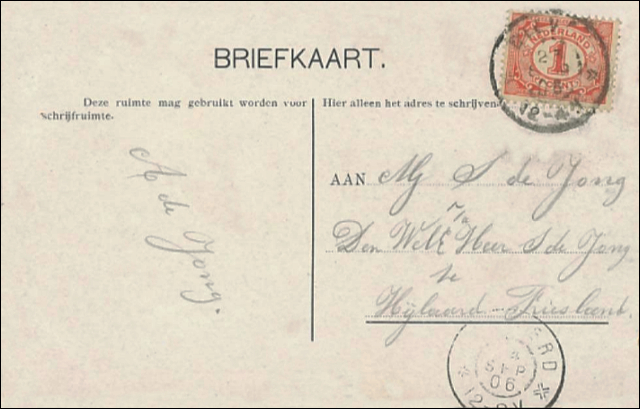 BRIEFKAART.
Deze ruimte mag gebruikt worden voor
schrijfruimte.
A de Jong.
Hier alleen het adres te schrijven
AAN Mej S de Jong
p/a
Den WelE Heer S de Jong
te
Hijlaard - Friesland.
NEDERLAND
1
CENT
12-
SEP
06
RD
12-